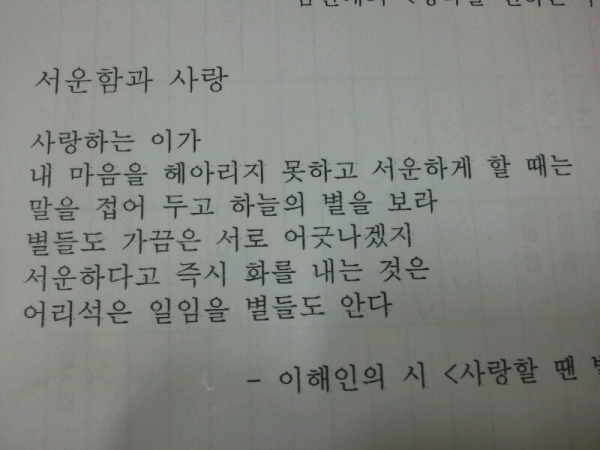 서운함과 사랑
사랑하는 이가
내 마음을 헤아리지 못하고 서운하게 할 때는
말을 접어 두고 하늘의 별을 보라
별들도 가끔은 서로 어긋나겠지
서운하다고 즉시 화를 내는 것은
어리석은 일임을 별들도 안다
- 이해인의 시 <사랑할 땐